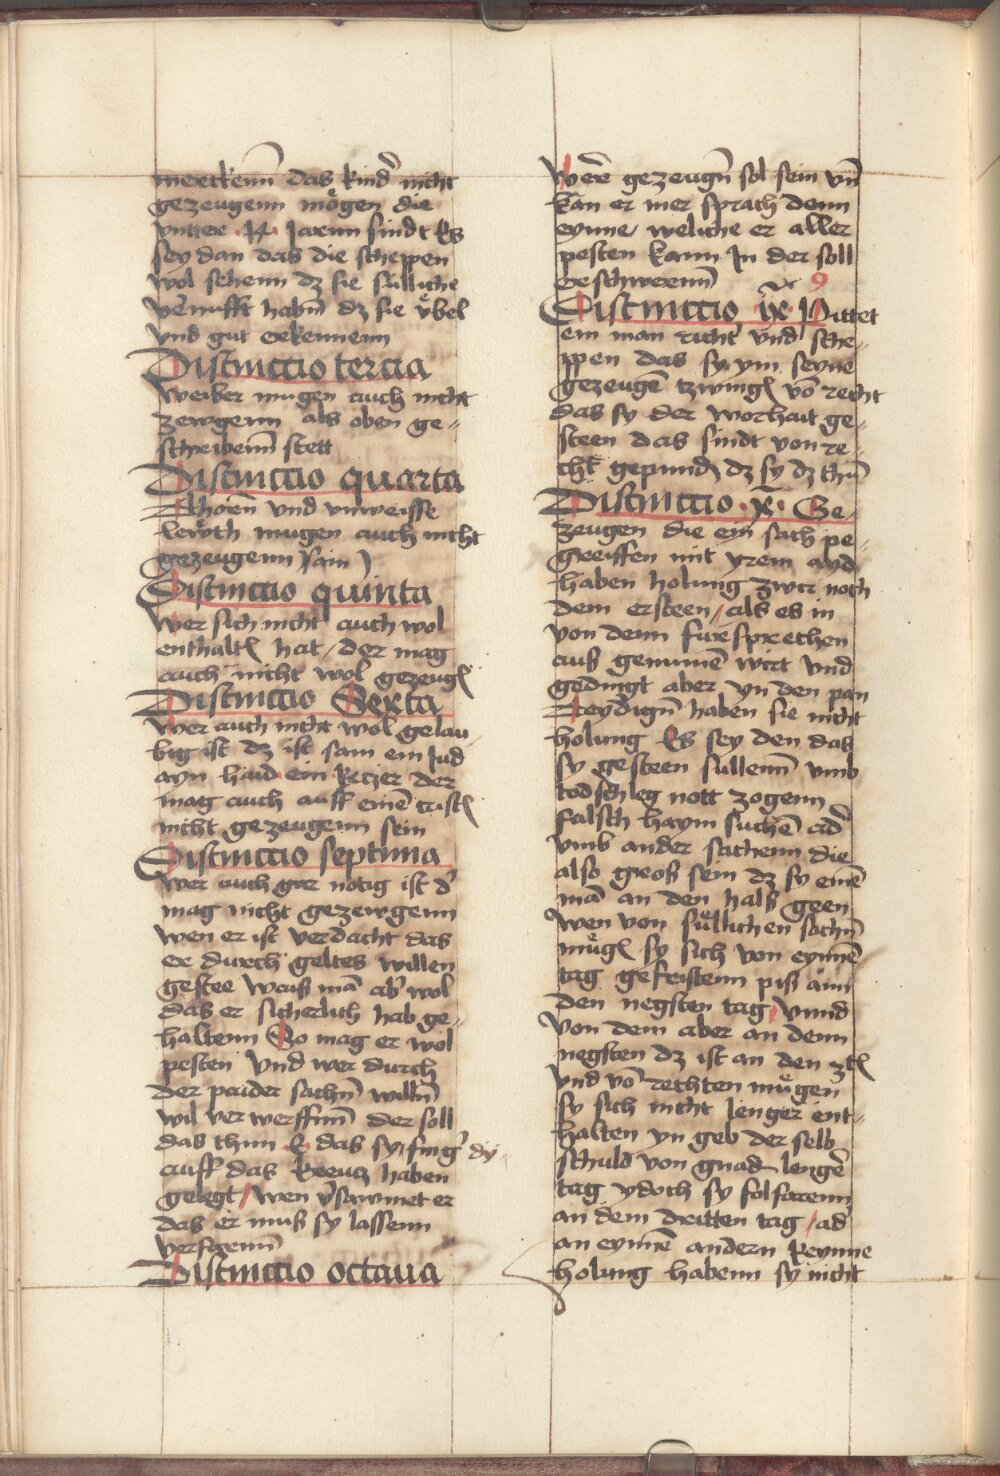 merckenn das kind nicht
gezeugenn mögen die
vntter .14. Jarenn sindt Es
sey dan das die scheppen
wol sehenn dz sie sülliche
vernufft habnn dz sie vbel
vnd gut erkennenn
Distinctio tercia
Weiber mugen auch nicht
zewgenn als oben ge-
schribenn stett
Distinctio quarta
Thorenn vnd vnweisse
lewth mugen auch nicht
gezeugenn sain
Distinctio quinta
Wer sich nicht auch wol
enthalt hat / der mag
auch nicht wol gezeug
Distinctio Sexta
Wer auch nicht wol gelau
big ist dz ist sam ein Jud
ayn haid ein ketzer der
mag auch auff eine crist
nicht gezeugenn sein
Distinctio septima
Wer auch gar notig ist d'
mag nicht gezewgenn
wen er ist verdacht das
er durch geltes willen
gestee waiß mā ab' wol
das er sicherlich hab ge-
haltenn So mag er wol
pesten Vnd wer durch
der paider sachn willn
wil verwerffnn der soll
das thun E das sy / fing' dy
auff das kreutz haben
gelegt / wen v'sawmet er
das er muß sy lassenn
verfarenn
Distinctio octaua
Were gezeugn sol sein vn
kan er mer sprach denn
eynne / weliche er aller
pesten kann In der soll
er schwerenn
Distinctio ix. Pittet
ein man richt' vnd sche-
ppen das sy ym seyne
gezeugē tzwing vō recht
das sy der worhait ge-
steen das sindt von re-
cht gepund dz sy dz thun
Distinctio .x. Ge-
zeugen die ein sach pe-
greiffen mit yrem ayd
haben holung zwir noch
dem ersteen / als es in
von denn fursprechen
auß genumē wirt vnd
gedingt aber yn den pan
teydign haben sie nicht
holung Es sey den das
sy gesteen sullenn vmb
todschleg nott zogenn
falsch haym suchē ad'
vmb ander sachenn die
also groß sein dz sy einē
mā an den halß geen
Wen von süllichen sachn
müg sy sich von eynnē
tag gefristenn piß ann
den negsten tag / Vnnd
von dem aber an denn
negsten dz ist an den 3t
vnd vō rechten mügen
sy sich nicht lenger ent-
halten yn geb der selb
schuld von gnad lengē
tag ydoch sy folfarenn
an dem dritten tag / ad'
an eynnē andern keynne
holung habenn sy nicht